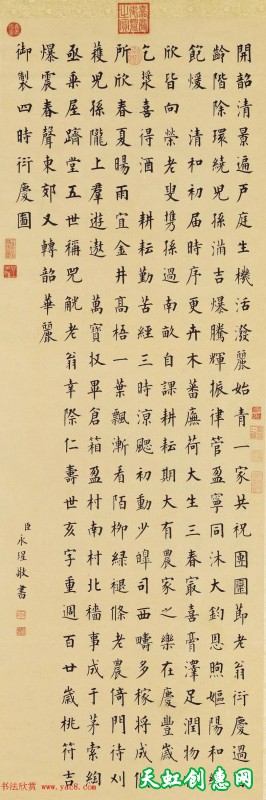 開韶清景遍戶庭生機活潑麗始青一家共祝團圞節老翁衍慶過
齡階除環繞兒孫滿吉爆騰輝振律管盈寧同沐大鈞恩煦嫗陽和
飽煖清和初屆時序更卉木蕃廡荷大生三春最喜膏澤足潤物
欣皆向榮老叟攜孫過南畝自課耕耘期大有農家之樂在慶豐歲
乞漿喜得酒耕耘勤苦經三時涼颸初動少皞司西疇多稼將成
所欣春夏暘雨宜金井高梧一葉飄漸看陌柳綠褪條老農倚門待刈
穫兒孫隴上羣遊遨萬寶收畢倉箱盈村南村北穡事成于茅索綯
亟乘屋躋堂五世稱兕觥老翁幸際仁壽世亥字重週百廿歲桃符吉
爆震春聲東郊又轉韶華麗
御製四時衍慶圖
臣永瑆敬書
书法欣赏 www.yac8.com
天虹创意网